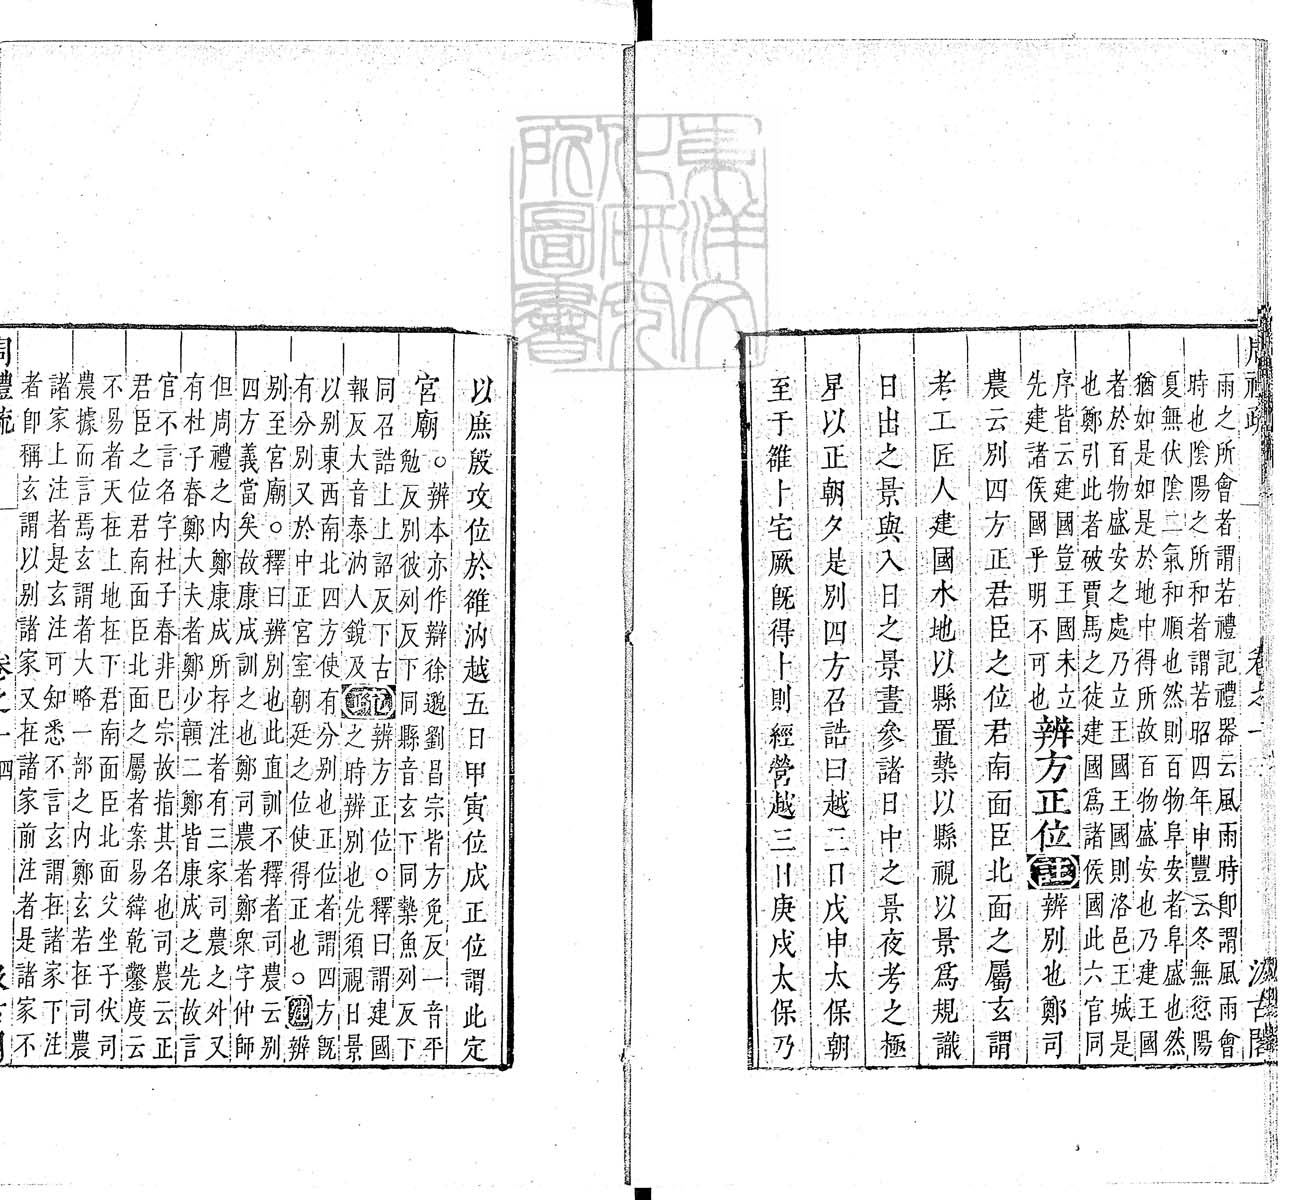 周禮疏 卷之一 汲古閣
雨之所會者謂若禮記禮器云風雨時卽謂風雨會
時也陰陽之所和者謂若昭四年申豐云冬無愆陽
夏無伏陰二氣和順也然則百物阜安者阜盛也然
猶如是如是於地中得所故百物盛安也乃建王國
者於百物盛安之處乃立王國王國則洛邑王城是
也鄭引此者破賈馬之徒建國爲諸侯國此六官同
序皆云建國豈王國未立
先建諸侯國乎明不可也
辨方正位註辨別也鄭司
農云別四方正君臣之位君南面臣北面之屬玄謂
考工匠人建國水地以縣置槷以縣視以景爲規識
日出之景與入日之景晝參諸日中之景夜考之極
星以正朝夕是別四方召誥曰越三日戊申太保朝
至于雒卜宅厥旣得卜則經營越三日庚戌太保乃
以庶殷攻位於雒汭越五日甲寅位成正位謂此定
宮廟
○辨本亦作辯徐邈劉昌宗皆方免反一音平
勉反別彼列反下同縣音玄下同槷魚列反下
同召誥上上詔反下古
報反大音泰汭人銳反
疏
辨方正位○釋曰謂建國
之時辨別也先須視日景
以別東西南北四方使有分別也正位者謂四方旣
有分別又於中正宮室朝廷之位使得正也○注辨
別至宮廟○釋曰辨別也此直訓不釋者司農云別
四方義當矣故康成訓之也鄭司農者鄭衆字仲師
但周禮之內鄭康成所存注者有三家司農之外又
有杜子春鄭大夫者鄭少贛二鄭皆康成之先故言
官不言名字杜子春非已宗故指其名也司農云正
君臣之位君南面臣北面之屬者案易緯乾鑿度云
不易者天在上地在下君南面臣北面父坐子伏司
農據而言焉玄謂者大略一部之內鄭玄若在司農
諸家上注者是玄注可知悉不言玄謂在諸家下注
者卽稱玄謂以別諸家又在諸家前注者是諸家不
周禮疏 卷之一 四 汲古閣
東洋文化研究所圖書